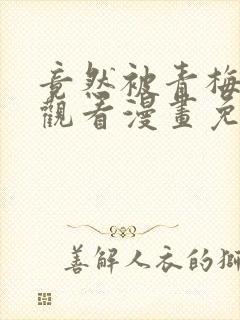 竟然被青梅
觀看漫畫免
善解人衣的獅